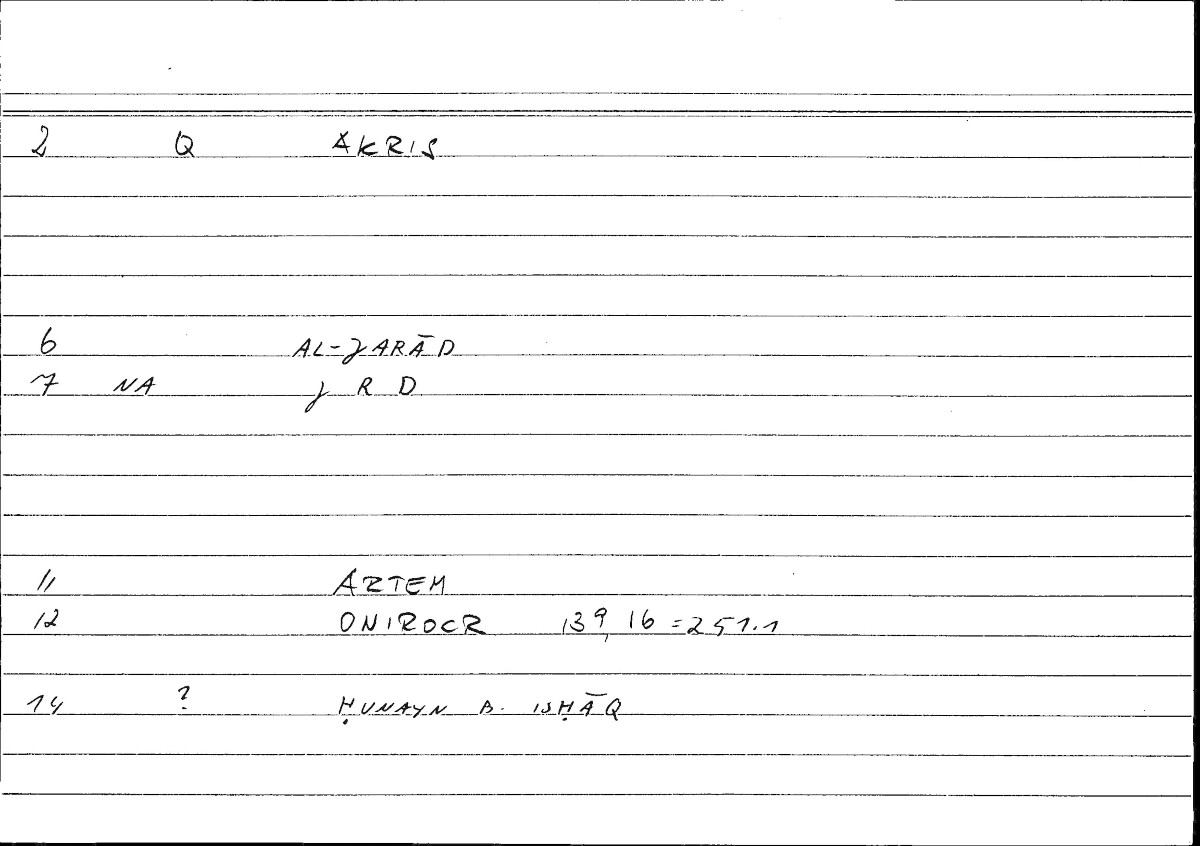 2 Q AKRIS
6 AL-JARĀD
7 NA J R D
11 ARTEM
12 ONIROCR 139,16=251.1
14 ? ḤUNAYN B. ISḤĀQ